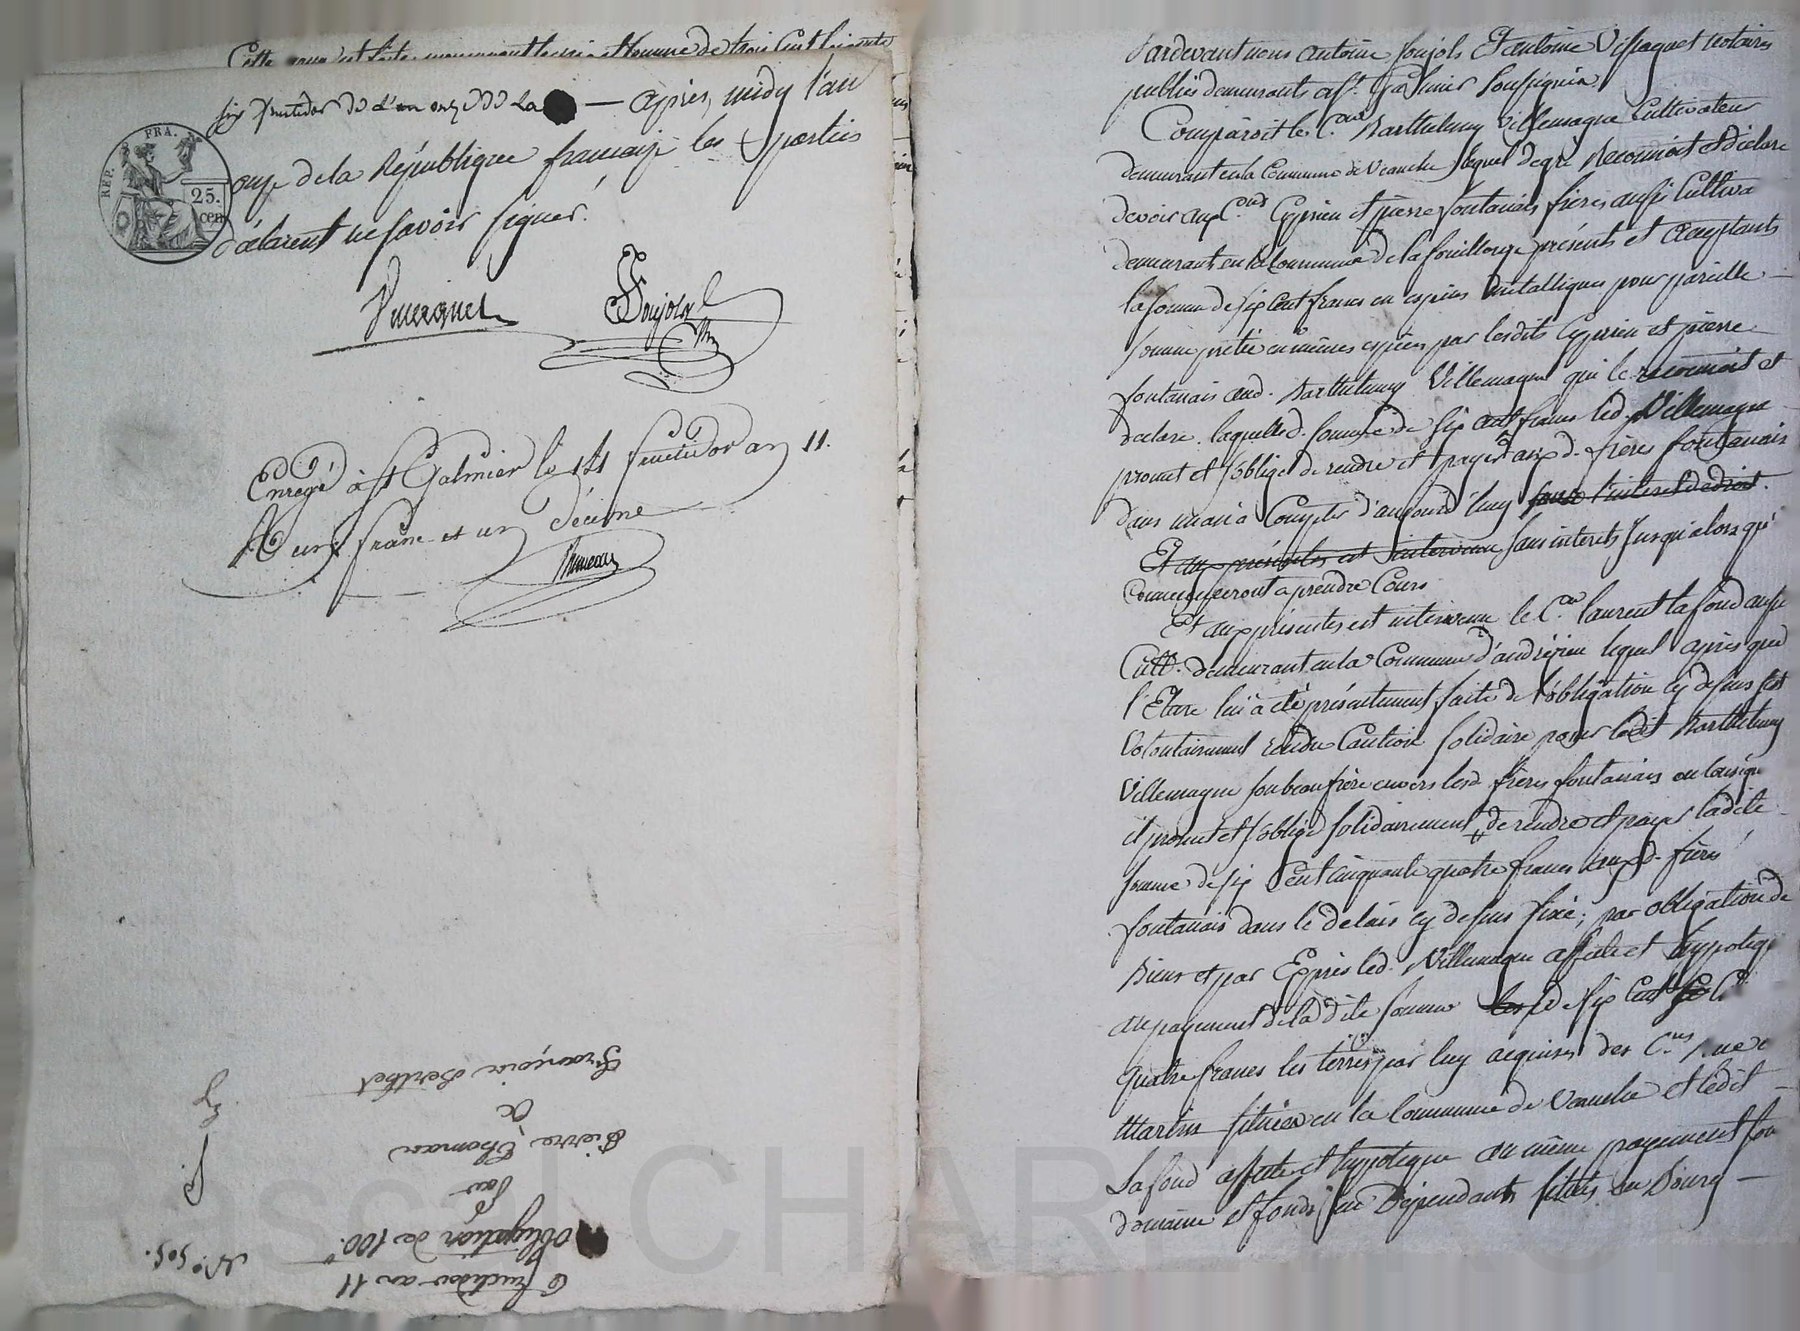 Cette somme de trois cent soixante
six fructidor de l'an onze de la — après, midy l'an
onze de la République francaize les parties
déclarent ne savoir signer.
REP. FRA.
25.
cen
Soujols
Enregé à St Galmier le 14 fructidor an 11.
R un franc et un décime
François Berthet
à
Pierre Thomas
Par
Obligation de 100.
6 fructidor an 11
N.º 505.
Pardevant nous antoine Soujols Et antoine Vissaguet notaires
publics demeurants à St. Galmier Soussignés
Comparoit le C.en Barthelemy Villemagne Cultivateur
demeurant en la Commune de Veauche lequel de gré Reconnoit et déclare
devoir aux C.ens Cyprien et pierre fontanais frères aussi Cultiva
demeurants en la Commune de la fouillouze présents et acceptants
la somme de six cent francs en espèces métalliques pour pareille
somme prêtée en mêmes espèces par lesdits Cyprien et pierre
fontanais aud. Barthelemy Villemagne qui le reconnoit et
déclare. laquelle d. somme de six cent francs led. Villemagne
promet et s'oblige de rendre et payer auxd. frères fontanais
dans un an à Compter d'aujourd'huy sous l'interet de droit.
Et aux présentes est intervenu sans interets jusqu'alors qu'
Commenceront a prendre Cours
Et aux présentes est intervenu le C.en laurent lafond aussi
Cult. demeurant en la Commune d'andrézieu lequel après que
lui a été présentement faite de l'obligation cy dessus s'est
volontairement rendu Caution solidaire pour ledit Barthelemy
Villemagne son beau frère envers lesd. frères fontanais
il promet et s'oblige solidairement de rendre et payer ladite
somme de six Cent cinquante quatre francs auxd. frères
fontanais dans le delais cy dessus fixé; par obligation de
Biens et par Exprès led. Villemagne affecte et hypoteque
au payement de la dite somme de six Cent
quatre francs les terres par luy acquises des C.ens
Martin situées en la Commune de Veauche et ledit
Lafond affecte et hypoteque au même payement son
domaine et fonds en Dépendants situés en Bourg